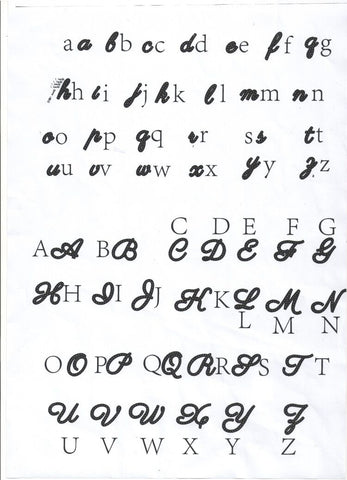 a a b b c c d d e e f f g g
h h i i j j k k l l m m n n
o o p p q q r r s s t t
u u v v w w x x y y z z
C D E F G
A A B B C D E F G
H H I I J J K K L M N
L M N
O O P P Q Q R R S S T T
U V W X Y Z
U V W X Y Z